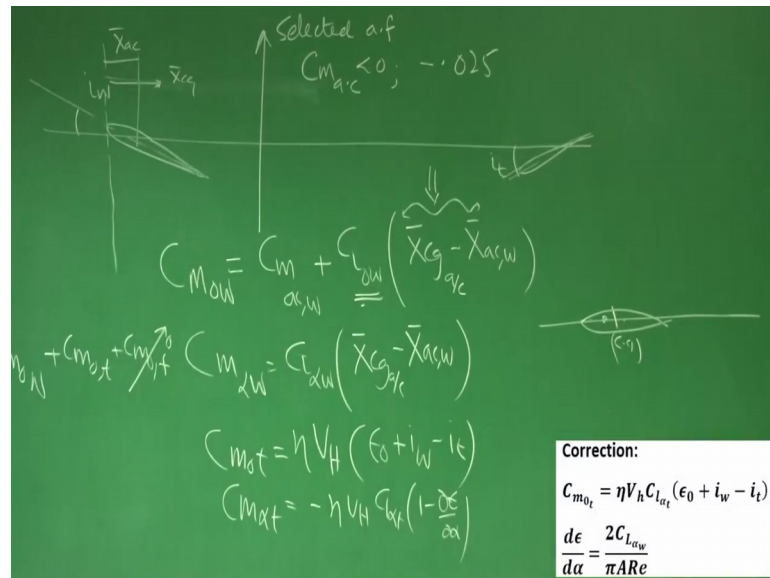 Selected a.f
C_{m_{a.c}} < 0; -.025
X̄_{ac}
i_w
X̄_{cg}
i_t
C_{m_{0w}} = C_{m_{ac,w}} + C_{L_{0w}} (X̄_{cg_{a/c}} - X̄_{ac,w})
(c.g)
m_{0,w} + C_{m_{0,t}} + C_{m_{0,f}} 0
C_{m_{αw}} = C_{L_{αw}} (X̄_{cg_{a/c}} - X̄_{ac,w})
C_{m_{0t}} = η V_H (ε_0 + i_w - i_t)
C_{m_{αt}} = -η V_H C_{L_{αt}} (1 - ∂ε/∂α)
Correction:
C_{m_{0_t}} = ηV_h C_{l_{α_t}} (ϵ_0 + i_w − i_t)
dϵ/dα = 2C_{L_{α_w}}/πARe